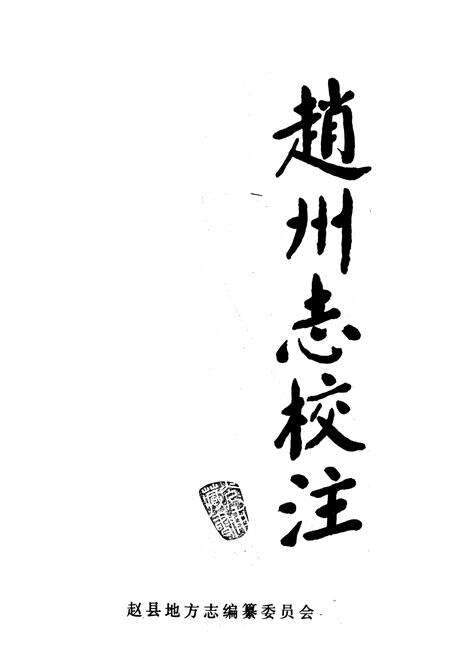 趙州志校注
赵县地方志编纂委员会